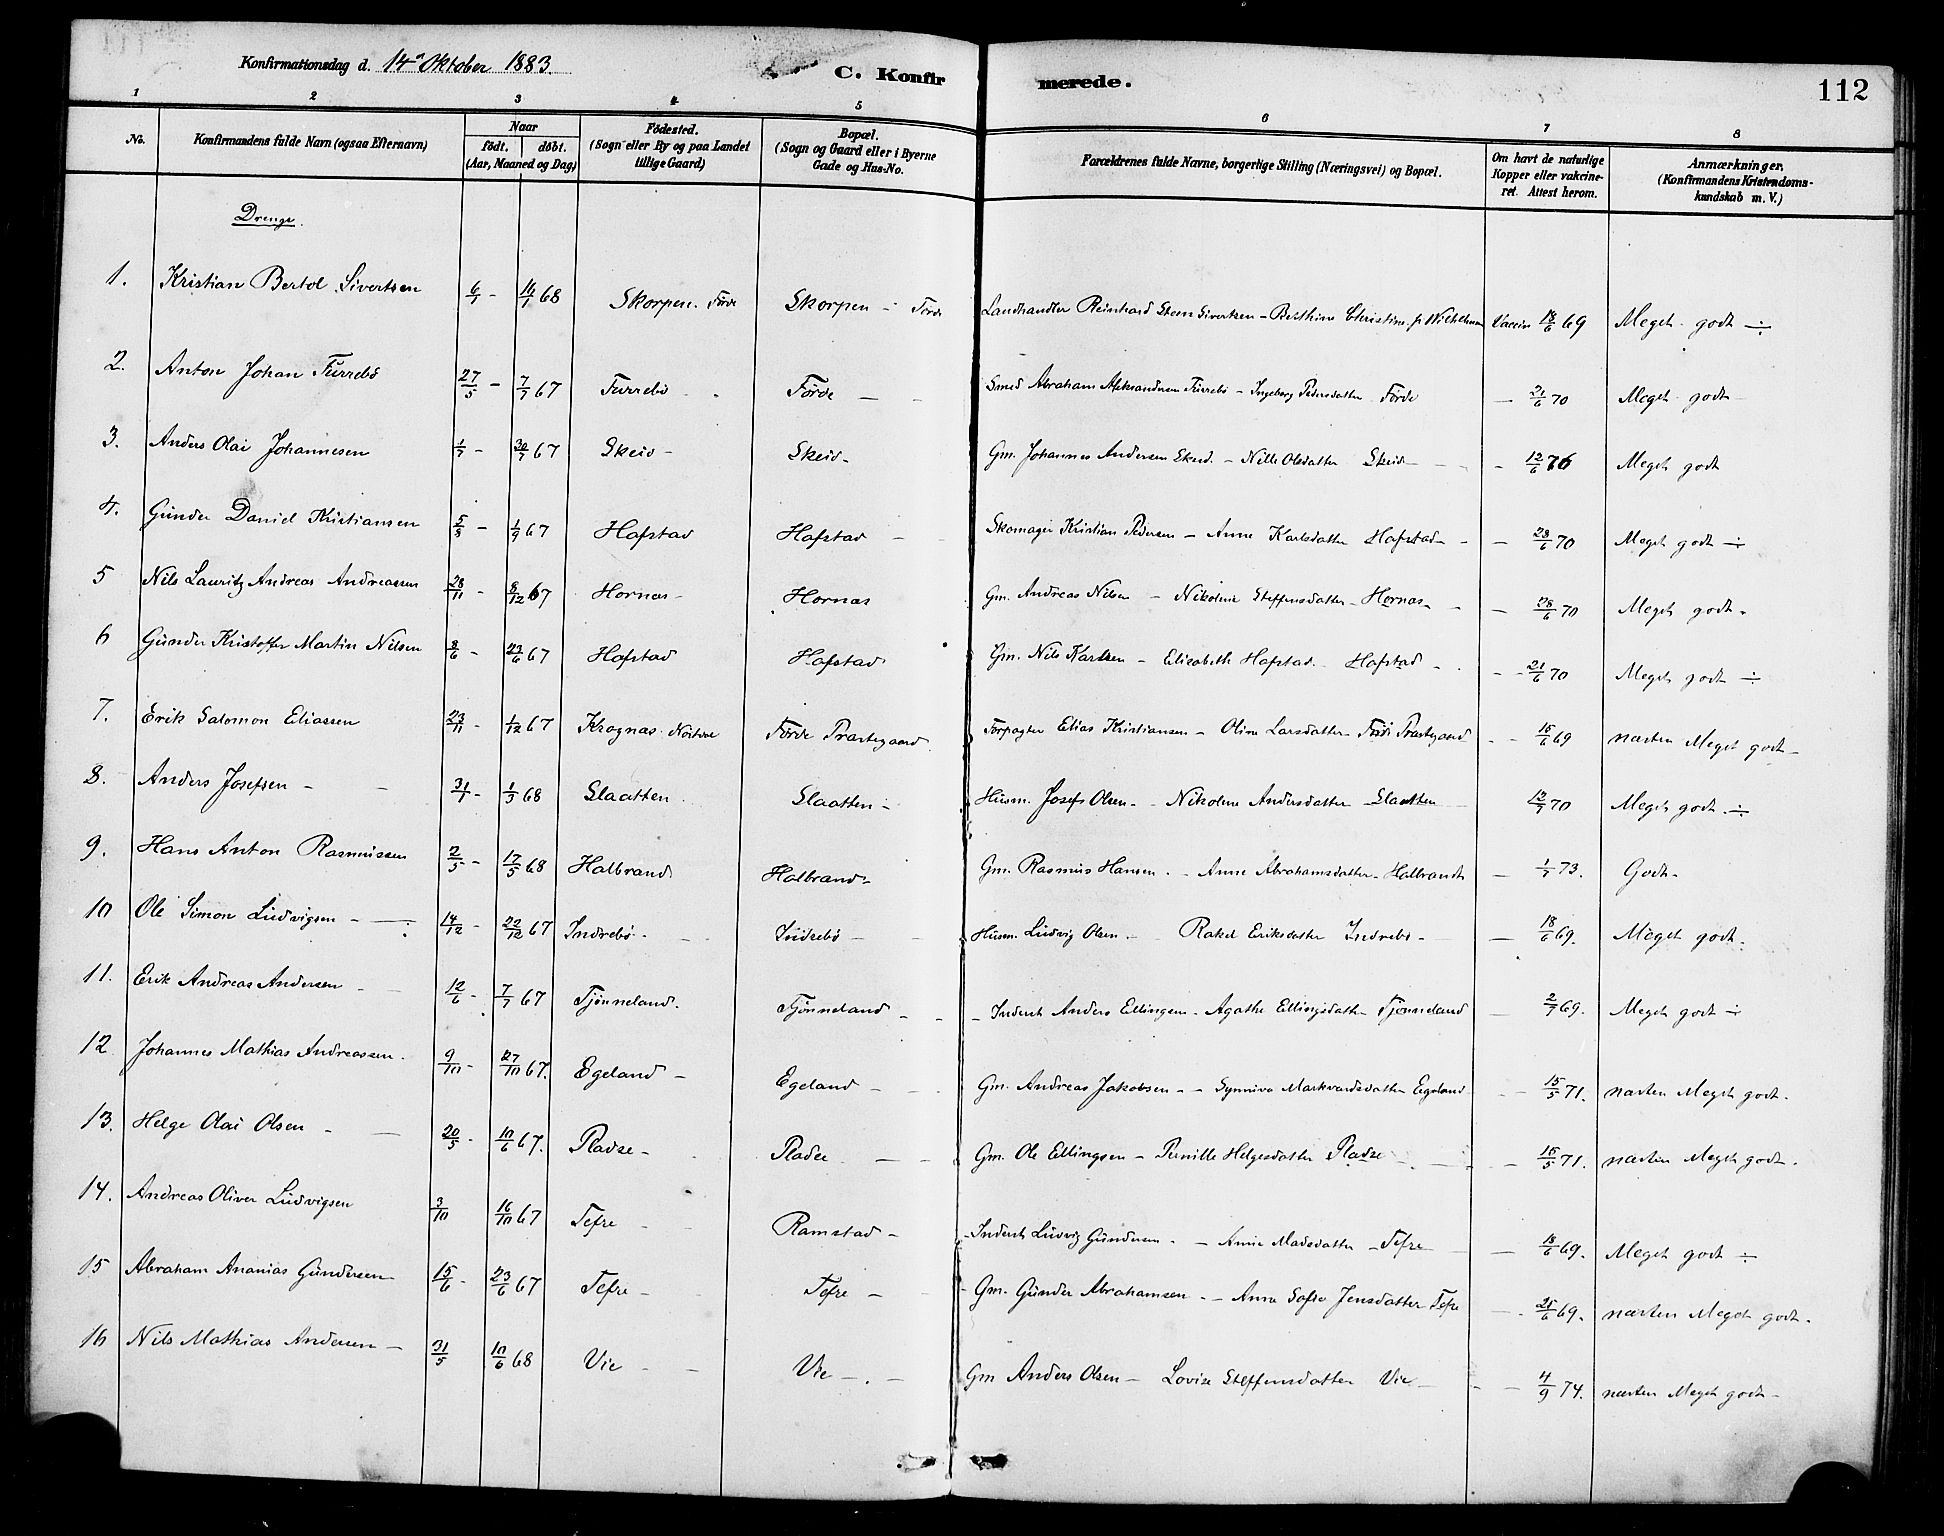 112
Konfirmationsdag d. 14de Oktober 1883.
C. Konfirmerede.
1 2 3 4 5 6 7 8
No. Konfirmandens fulde Navn (ogsaa Efternavn) Naar født. døbt. (Aar, Maaned og Dag) Fødested. (Sogn eller By og paa Landet tillige Gaard) Bopæl. (Sogn og Gaard eller i Byerne Gade og Hus-No. Forældrenes fulde Navne, borgerlige Stilling (Næringsvei) og Bopæl. Om havt de naturlige Kopper eller vakcineret. Attest herom. Anmærkninger, (Konfirmandens Kristendomskundskab m. V.)
Drenge.
1. Kristian Bertol Sivertsen 6/7 - 16/7 68 Skorpen. Førde Skorpen - Førde Landhandler Reinhard Steen Sivertsen - Berthine Christine f. Wilhelmsen Vaccin 18/6 69 Meget godt ÷
2. Anton Johan Furrebø 27/5 - 7/7 67 Furrebø Førde - Smed Abraham Aleksandersen Furrebø - Ingeborg Pedersdatter Førde - 21/6 70 Meget godt
3. Anders Olai Johannesen 1/7 - 30/7 67 Skeid - Skeid - Gm. Johannes Andersen Skeid. - Nille Olsdatter Skeid - - 12/6 76 Meget godt
4. Gunder Daniel Kristiansen 5/8 - 1/9 67 Hafstad Hafstad - Skomager Kristian Pedersen - Anne Karlsdatter Hafstad - - 23/6 70 Meget godt ÷
5 Nils Lauritz Andreas Andreassen 28/11 - 8/12 67 Hornas - Hornas Gm. Andreas Nilsen - Nikoline Steffensdatter - Hornas - - 28/6 70 Meget godt -
6 Gunder Kristoffer Martin Nilsen 8/6 - 23/6 67 Hafstad Hafstad Gm. Nils Karlsen - Elisabeth Hafstad. Hafstad - - 21/6 70 Meget godt ÷
7. Erik Salomon Eliassen 23/11 - 1/12 67 Kragnas. Førde Prastegaard. Forpagter Elias Kristiansen - Oline Larsdatter - Førde Prastegaard - 15/6 69 nasten Meget godt -
8. Anders Josefsen - 31/1 - 1/3 68 Slaatten Slaatten - Husm. Josef Olsen - Nikoline Andersdatter Slaatten 12/7 70 Meget godt ÷
9. Hans Anton Rasmussen 2/5 - 17/5 68 Halbrand Halbrand - Gm. Rasmus Hansen. - Anne Abrahamsdatter - Halbrandt - 1/7 73. Godt -
10 Ole Simon Ludvigsen - 14/12 - 22/12 67 Indrebø - Indrebø - Husm. Ludvig Olsen. - Rakel Eriksdatter Indrebø - - 18/6 69. Meget godt -
11. Erik Andreas Andersen - 12/6 - 7/7 67 Tjønneland. Tjønneland - - Inderst Anders Ellingsen - Agathe Ellingsdatter Tjønneland - 2/7 69. Meget godt ÷
12. Johannes Mathias Andreassen. 9/10 - 27/10 67. Egeland - Egeland - Gm. Andreas Jakobsen - - Synniva Markvardsdatter Egeland - 15/5 71. nasten Meget godt.
13. Helge Olai Olsen - 20/5 - 10/6 67. Pladse - Pladse - Gm. Ole Ellingsen - Pernille Helgesdatter Pladse - 15/5 71. nasten Meget godt.
14. Andreas Oliver Ludvigsen 3/10 16/10 67 Tefre - Ramstad - Inderst Ludvig Gundersen - - Anne Madsdatter - Tefre - 18/6 69. Meget godt ÷
15 Abraham Ananias Gundersen 15/6 - 23/6 67 Tefre - Tefre - Gm. Gunder Abrahamsen - - Anna Sofie Jensdatter Tefre - 25/6 69. nasten Meget godt.
16 Nils Mathias Andersen - 31/5 10/6 68 Vie - Vie - Gm Anders Olsen - Lovise Steffensdatter Vie - 4/9 74. nasten Meget godt -